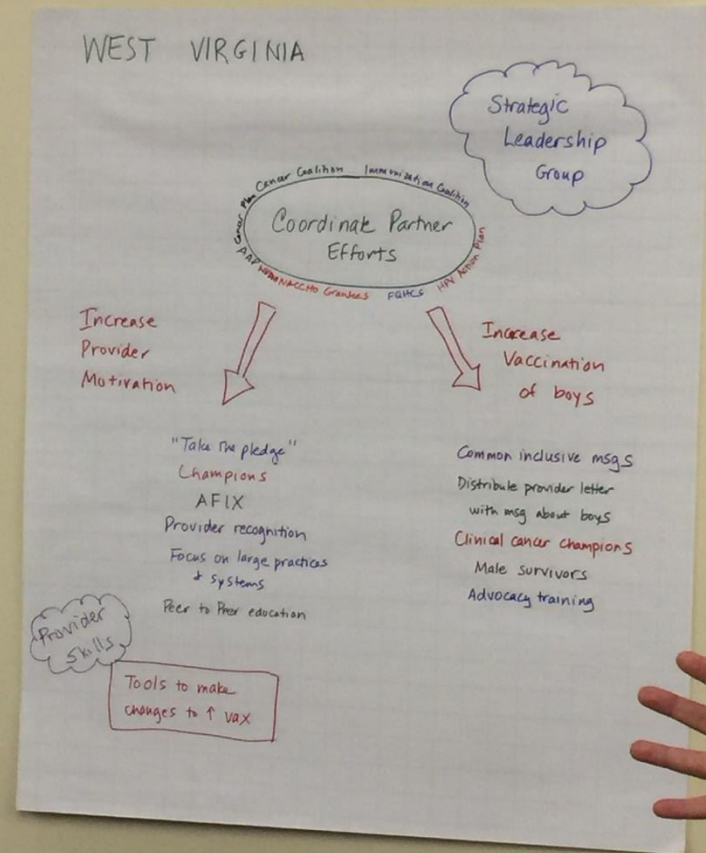 WEST VIRGINIA
Strategic
Leadership
Group
Cancer Plan
Cancer Coalition
Immunization Coalition
Coordinate Partner
Efforts
AAP
NACCHO Grantees
FQHCS
HPV Action Plan
Increase
Provider
Motivation
Increase
Vaccination
of boys
"Take the pledge"
Champions
AFIX
Provider recognition
Focus on large practices
+ systems
Peer to Peer education
Common inclusive msgs
Distribute provider letter
with msg about boys
Clinical cancer champions
Male survivors
Advocacy training
Provider
Skills
Tools to make
changes to ↑ vax